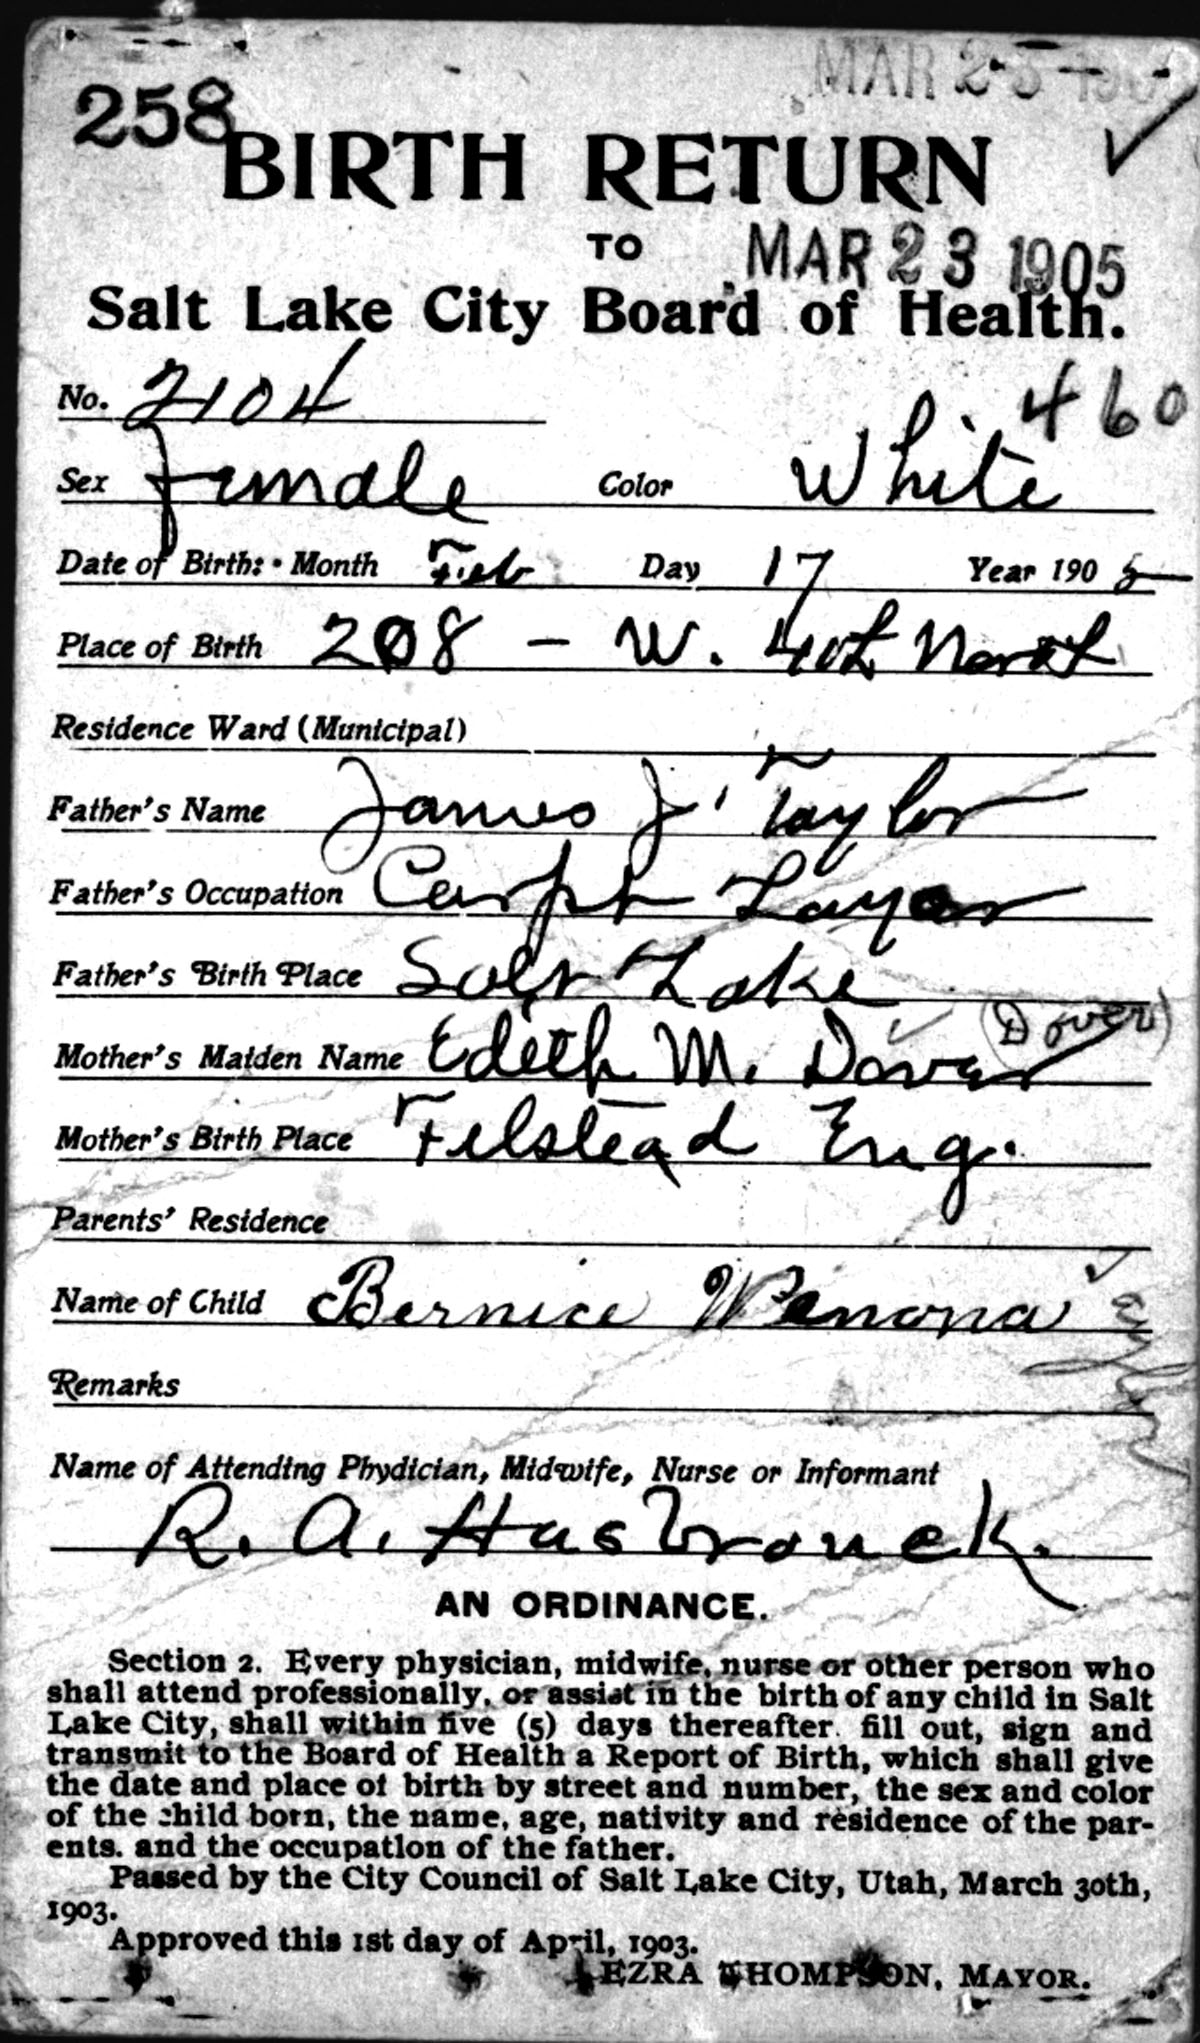 MAR 23 190
258
BIRTH RETURN
TO MAR 23 1905
Salt Lake City Board of Health.
460
No. 2104
Sex Female Color White
Date of Birth: Month Feb Day 17 Year 1905
Place of Birth 208 - W. 4th North
Residence Ward (Municipal)
Father's Name James J. Taylor
Father's Occupation Carpt Layer
Father's Birth Place Salt Lake
(Dover)
Mother's Maiden Name Edith M. Dover
Mother's Birth Place Felstead Eng.
Parents' Residence
Name of Child Bernice Wenona
Remarks
Name of Attending Phydician, Midwife, Nurse or Informant
R. A. Hasbrouck.
AN ORDINANCE.
Section 2. Every physician, midwife, nurse or other person who
shall attend professionally, or assist in the birth of any child in Salt
Lake City, shall within five (5) days thereafter fill out, sign and
transmit to the Board of Health a Report of Birth, which shall give
the date and place of birth by street and number, the sex and color
of the child born, the name, age, nativity and residence of the par-
ents. and the occupation of the father.
Passed by the City Council of Salt Lake City, Utah, March 30th,
1903.
Approved this 1st day of April, 1903.
EZRA THOMPSON, MAYOR.